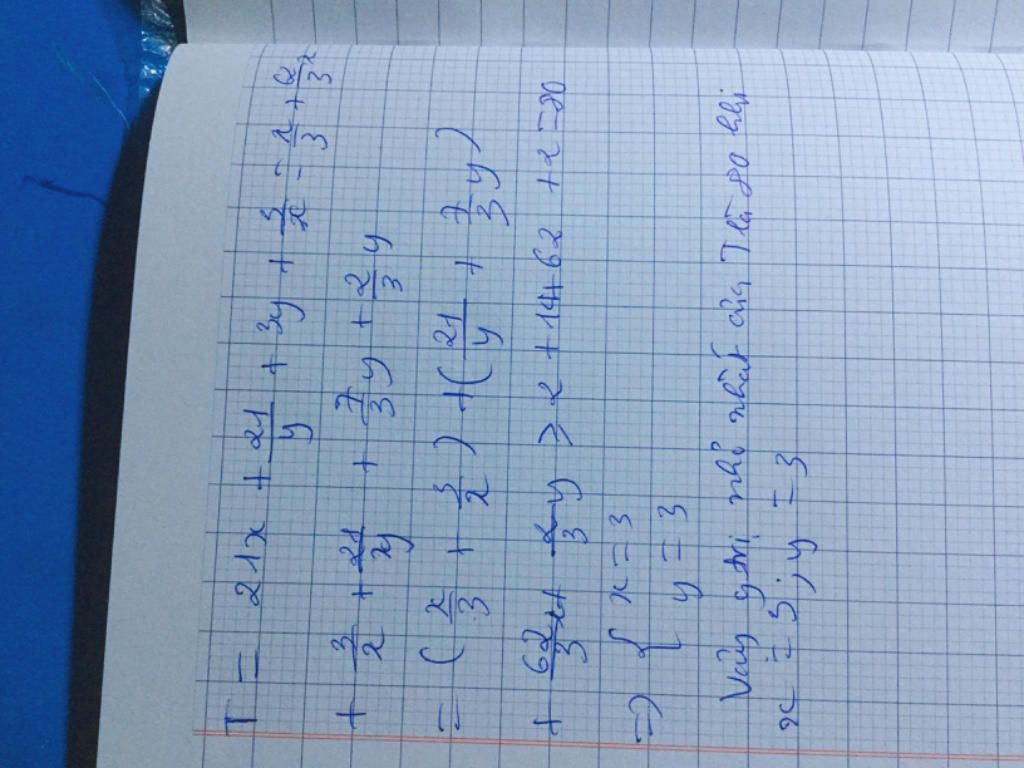 T = 21x + 21/y + 3y + 3/x = x/3 + 62/3 x
+ 3/x + 21/y + 7/3 y + 2/3 y
= (x/3 + 3/x) + (21/y + 7/3 y)
+ 62/3 x + 2/3 y ≥ 2 + 14 + 62 + 2 = 80
=> { x = 3
y = 3
Vậy giá trị nhỏ nhất của T là 80 khi
x = 3, y = 3